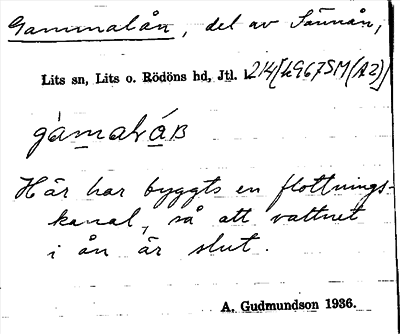 Gammalån, del av Sännån,
Lits sn, Lits o. Rödöns hd, Jtl. l.
gàmalváʙ
Här har byggts en flottnings-
kanal, så att vattnet
i ån är slut.
A. Gudmundson 1936.